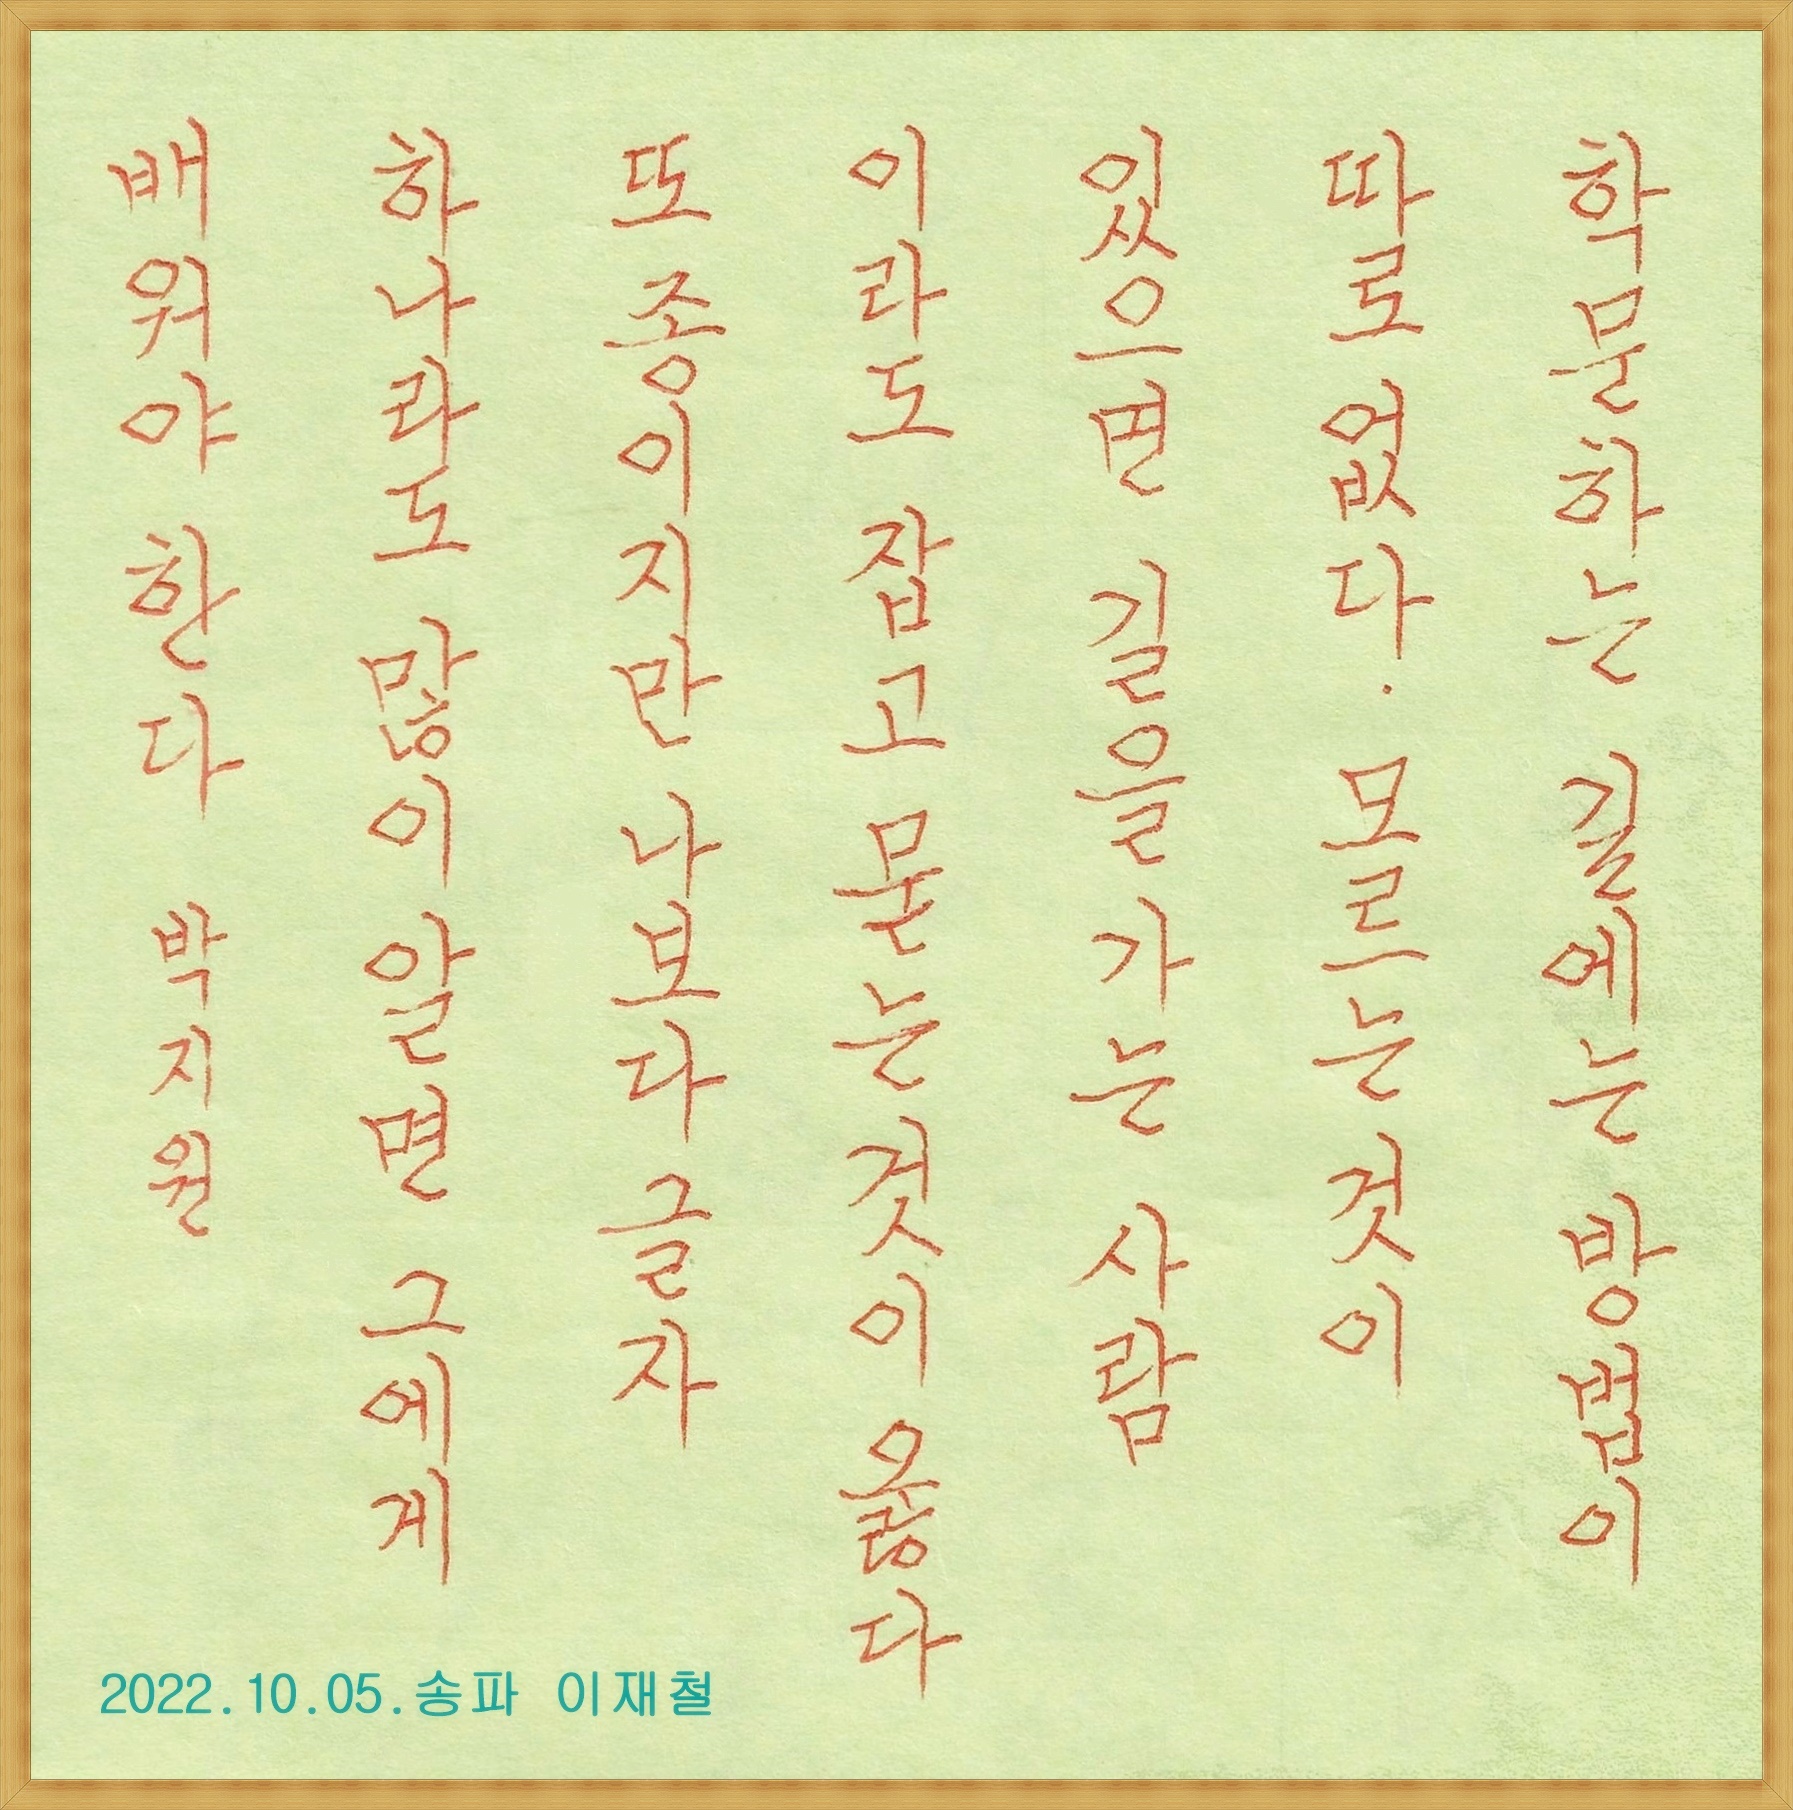 학문하는 길에는 방법이
따로 없다. 모르는 것이
있으면 길을 가는 사람
이라도 잡고 묻는 것이 옳다
또 종이지만 나보다 글자
하나라도 많이 알면 그에게
배워야 한다 박지원
2022.10.05.송파 이재철